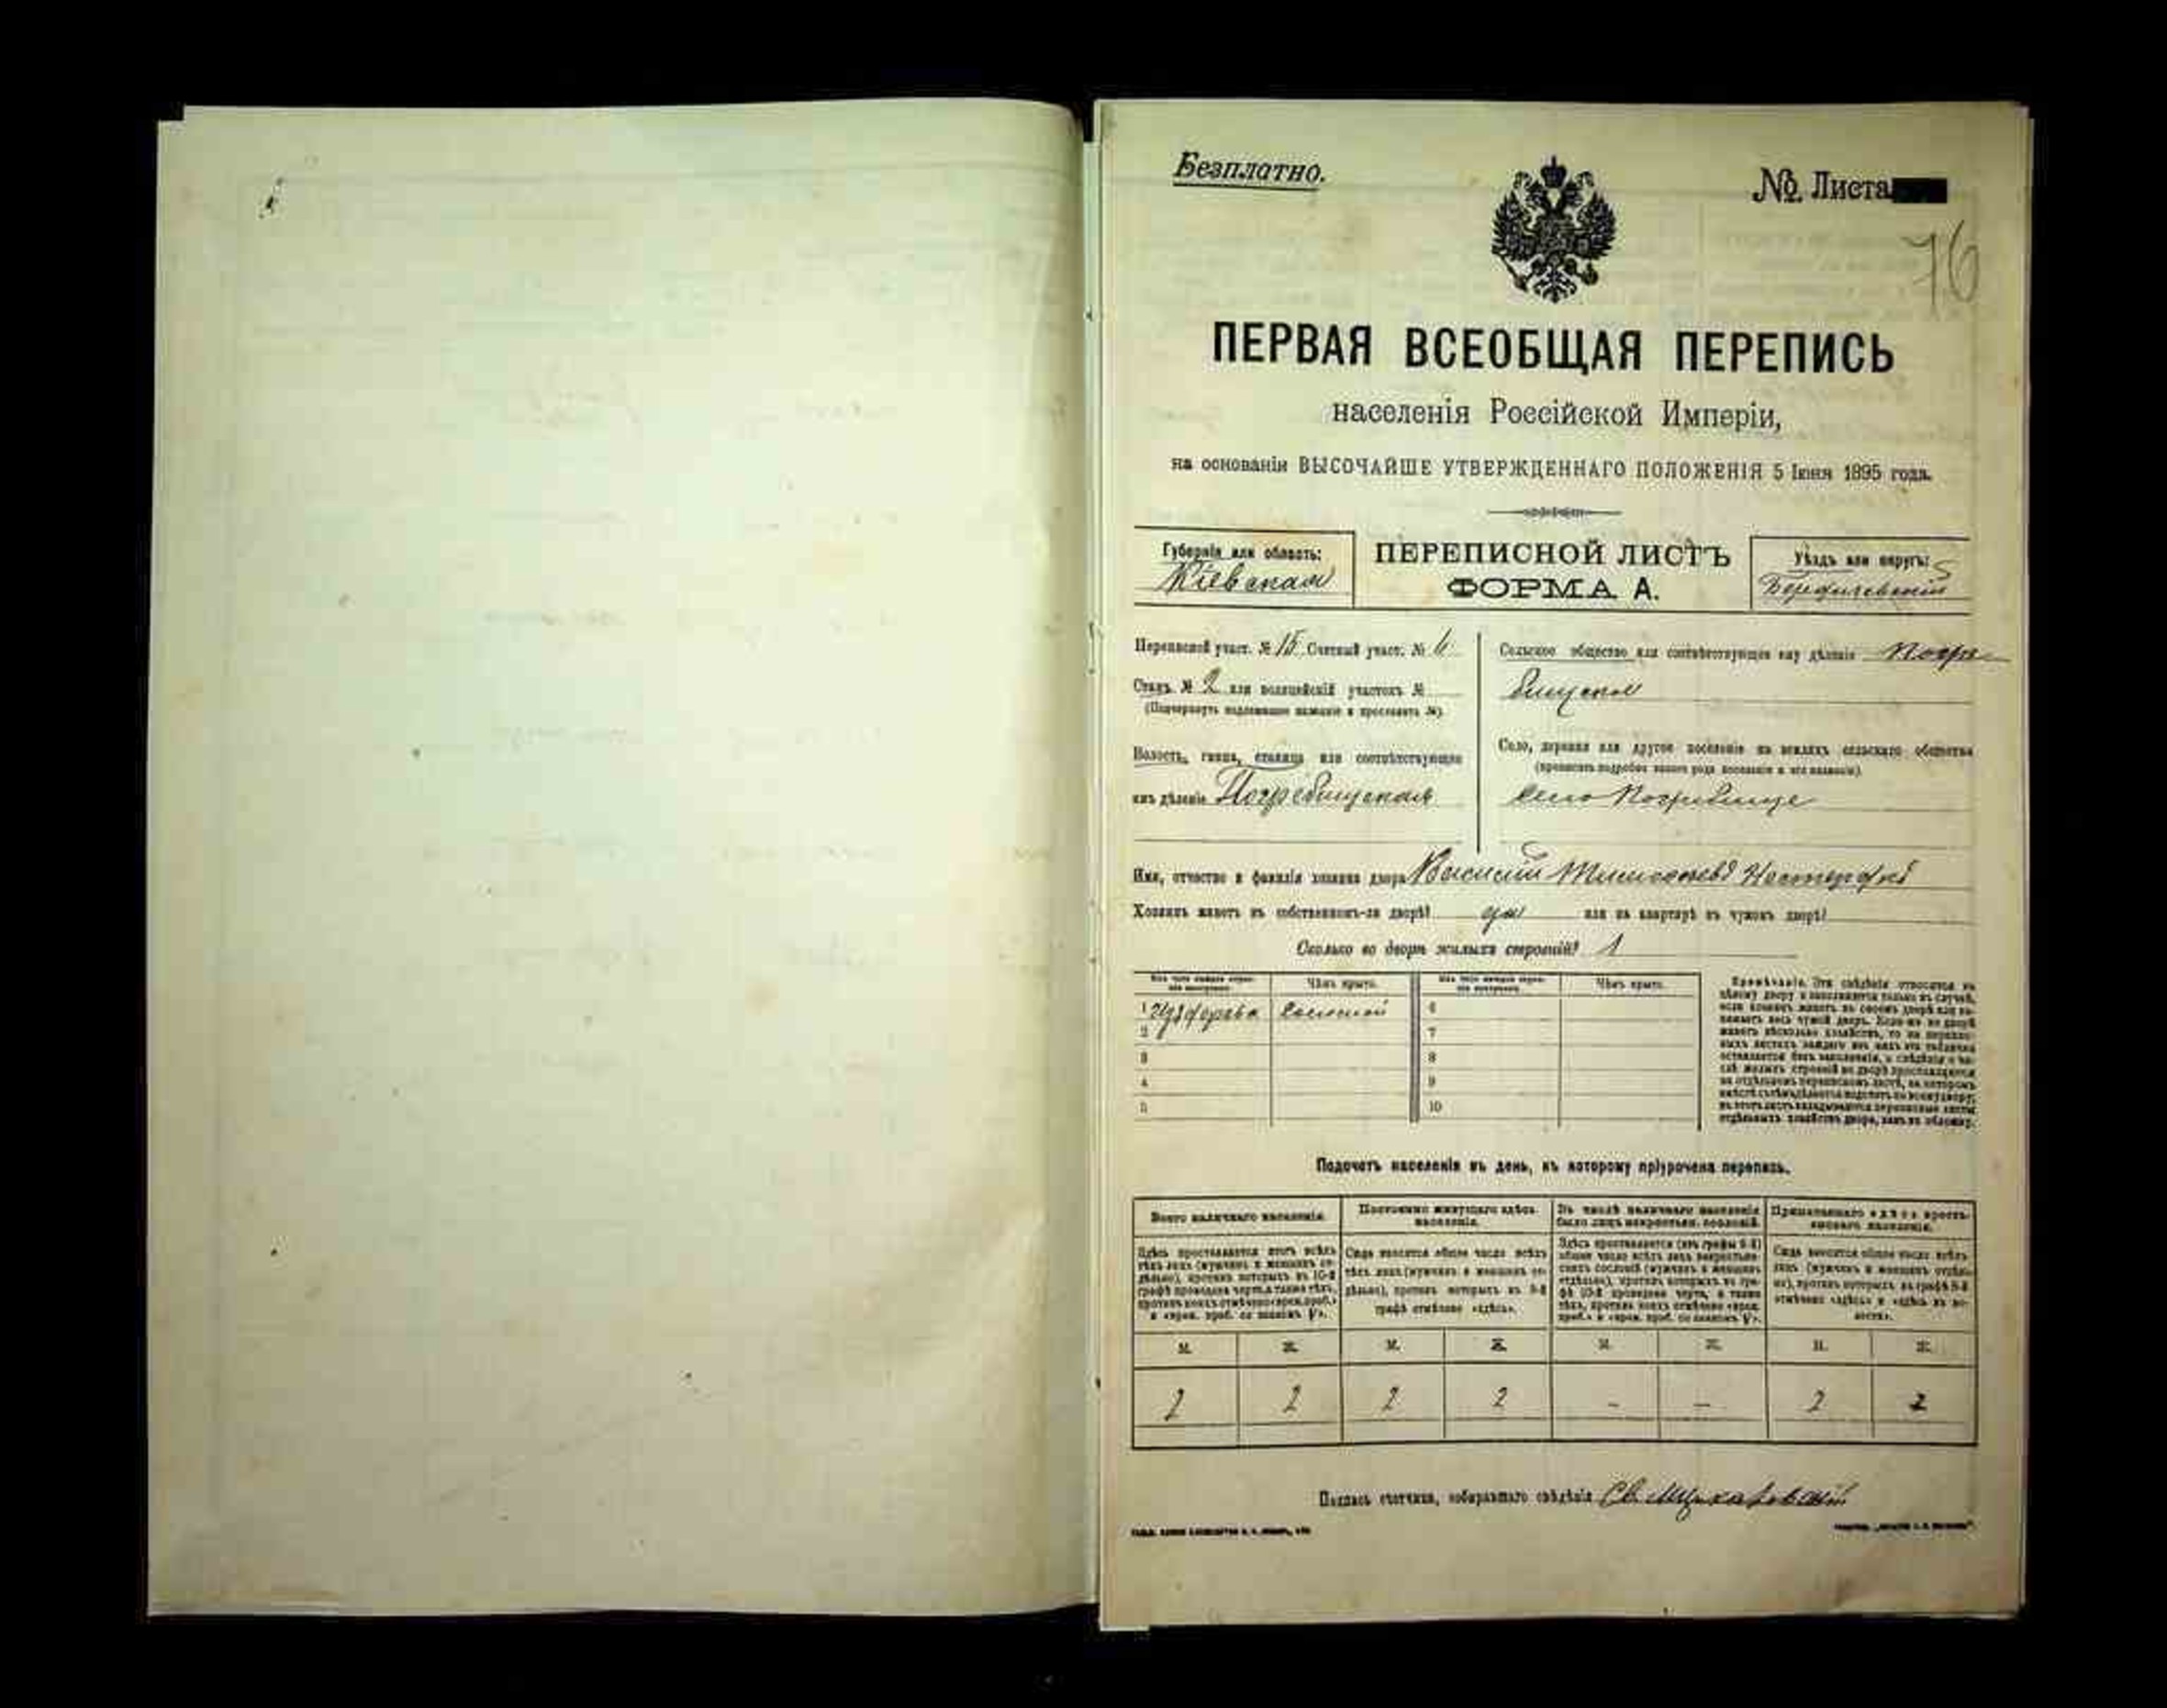 Безплатно.
№ Листа
76
ПЕРВАЯ ВСЕОБЩАЯ ПЕРЕПИСЬ
населенія Россійской Имперіи,
на основаніи ВЫСОЧАЙШЕ УТВЕРЖДЕННАГО ПОЛОЖЕНІЯ 5 Іюня 1895 года.
Губернія или область:
Кіевская
ПЕРЕПИСНОЙ ЛИСТЪ
ФОРМА А.
Уѣздъ или округъ:
Бердичевскій
Переписной участ. № 15 Счетный участ. №
Станъ № 2 или полицейскій участокъ №
(Подчеркнуть надлежащее названіе и проставить №)
Волость, гмина, станица или соотвѣтствующее
имъ дѣленіе Погребищская
Сельское общество или соотвѣтствующее ему дѣленіе Погре
бищское
Село, деревня или другое поселеніе на земляхъ сельскаго общества
(прописать подробно какого рода поселеніе и его названіе)
село Погребище
Имя, отчество и фамилія хозяина двора
Хозяинъ живетъ въ собственномъ-ли дворѣ? да или на квартирѣ въ чужомъ дворѣ?
Сколько во дворѣ жилыхъ строеній? 1
Изъ чего каждое строеніе выстроено. Чѣмъ крыто. Изъ чего каждое строеніе выстроено. Чѣмъ крыто.
1 соломой 6
2 7
3 8
4 9
5 10
Примѣчаніе. Эти свѣдѣнія относятся къ
цѣлому двору и заполняются только въ случаѣ,
если хозяинъ живетъ въ своемъ дворѣ или за-
нимаетъ весь чужой дворъ. Если-же во дворѣ
живетъ нѣсколько хозяйствъ, то на перепис-
ныхъ листахъ каждаго изъ нихъ эта табличка
оставляется безъ заполненія, а свѣдѣнія о чи-
слѣ жилыхъ строеній во дворѣ проставляются
на отдѣльномъ переписномъ листѣ, на которомъ
отдѣльныхъ хозяйствъ двора, какъ въ обложку.
Подсчетъ населенія въ день, къ которому пріурочена перепись.
Всего наличнаго населенія. Постоянно живущаго здѣсь населенія. Въ числѣ наличнаго населенія было лицъ некрестьян. сословій. Приписаннаго здѣсь крестьянскаго населенія.
Здѣсь проставляется итогъ всѣхъ
тѣхъ лицъ (мужчинъ и женщинъ от-
дѣльно), противъ которыхъ въ 10-й
графѣ проведена черта, а также тѣхъ,
противъ коихъ отмѣчено «врем. преб.»
и «врем. преб. со знакомъ V».
Сюда вносится общее число всѣхъ
тѣхъ лицъ (мужчинъ и женщинъ от-
дѣльно), противъ которыхъ въ 9-й
графѣ отмѣчено «здѣсь».
Здѣсь проставляется (изъ графы 6-й)
общее число всѣхъ лицъ некрестьян-
скихъ сословій (мужчинъ и женщинъ
отдѣльно), противъ которыхъ въ гра-
фѣ 10-й проведена черта, а также
тѣхъ, противъ коихъ отмѣчено «врем.
преб.» и «врем. преб. со знакомъ V».
Сюда вносится общее число всѣхъ
лицъ (мужчинъ и женщинъ отдѣль-
но), противъ которыхъ въ графѣ 8-й
отмѣчено «здѣсь» и «здѣсь въ во-
лости».
М. Ж. М. Ж. М. Ж. М. Ж.
2 2 2 2 - - 2 2
Подпись счетчика, собиравшаго свѣдѣнія